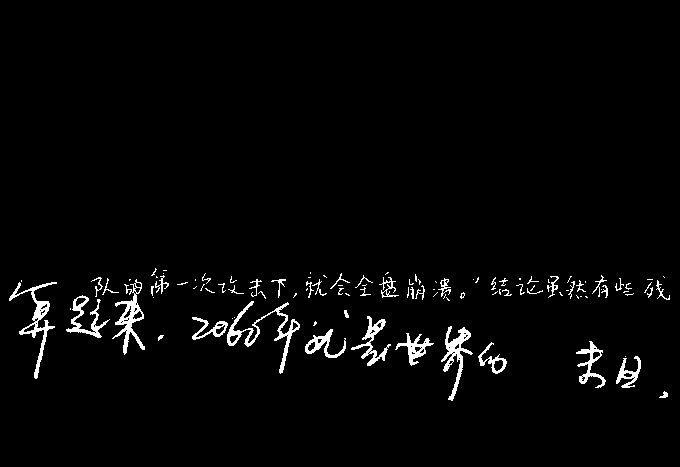 队的第一次攻击下，就会全盘崩溃。"结论虽然有些残
算起来，2060年就是世界的 末日，